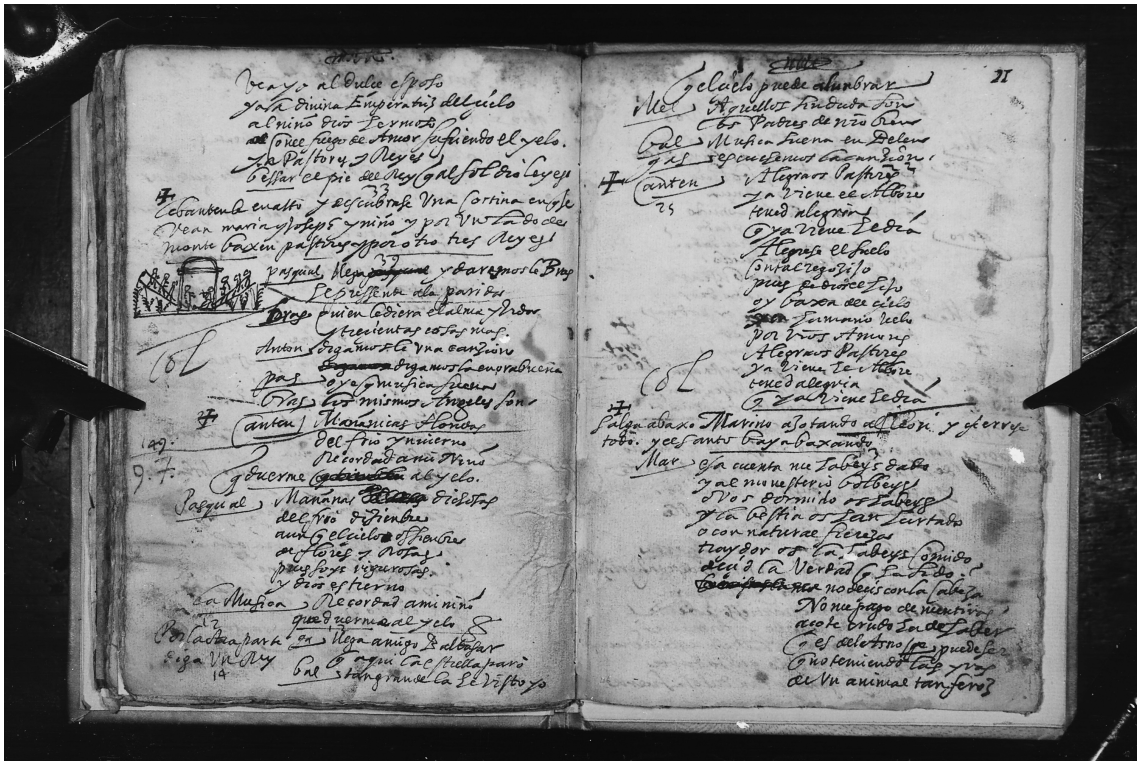 veayo al dulce esposo
y a la divina Emperatriz del cielo
al niño dios hermoso
con el fuego de Amor sufriendo el yelo.
y a Pastores y Reyes
bessar el pie del Rey q al sol dio leyes
33
lebantenle en alto y descubrase Una cortina en q se
vean maria y Joseph y niño y por Un lado del
monte baxen pastores y por otro tres Reyes
33
pasqual llega y daremosle Bras
le pressente a la parida
Bras quien le diera el alma y vida
y trecientas cosas mas.
Anton digamosle Una canzion
digamos la enorabuena
pas oye q musica suena
Bras los mismos Angeles son
Col
canten Mañanicas floridas
del frio ynvierno
Recordad a mi Niño
q duerme al yelo.
149.
9.7.
Pasqual Mañanas dichosas
del frio diziembre
aunq el cielo os siembre
de flores y Rosas
pues soys rigurosas
y dios es tierno
la Musica Recordad a mi niño
que duerme al yelo
12
Por la otra parte
diga Un Rey
14
ea llega amigo Baltasar
q aqui la estrella paro
Bal tan grande la he visto yo
21
q el cielo puede alunbrar
Mel Aquellos sin duda son
los Padres de nro bien
Bal Musica suena en Belen
gas escuchemos la canzion.
canten Alegraos Pastores
25
ya viene el Albore
tened alegria
q ya viene el dia
Alegrese el suelo
con tal regozijo
pues de dios el hijo
oy baxa del cielo
humano velo
por vros Amores
Alegraos Pastores
ya viene el Albore
tened alegria
q ya viene el dia
Col
salga abaxo Marino azotando al Leon y
todo. y el santo baya baxando
Mar esa cuenta me habeys dado
y al monesterio bolbeys
os vos dormido os habeys
y la bestia os han hurtado
o con natural fiereza
traydor os la habeys comido
decid la Verdad q ha sido
no deis con la cabeza
No me pago de mentiras
azote crudo ha de haber
q es del Amo q puede ser
q no temiendo las yras
de Un animal tan feroz